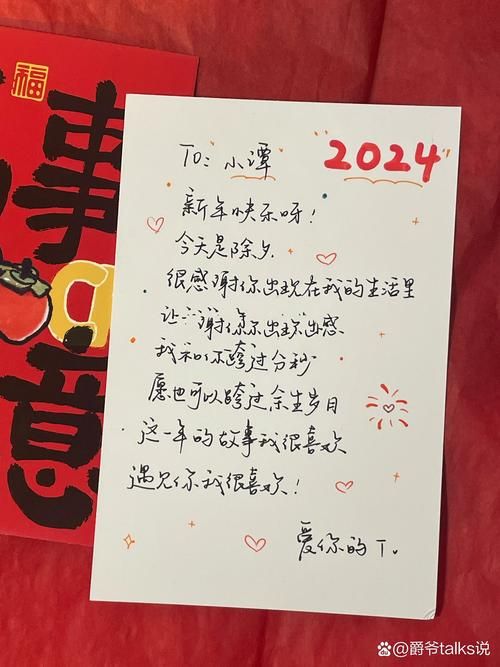 福
事
意
To: 小谭 "2024"
新年快乐呀!
今天是除夕.
很感谢你出现在我的生活里
让谢你出现出感
我和你跨过分秒
愿也可以跨过余生岁月
这一年的故事我很喜欢
遇见你我很喜欢!
爱你的 T.
@爵爷talks说